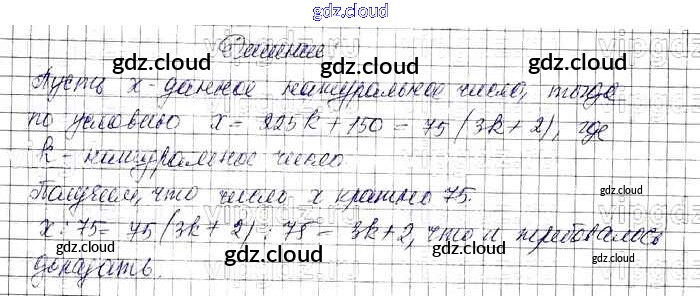 gdz.cloud
Решение
gdz.cloud gdz.cloud gdz.cloud
Пусть x - данное натуральное число, тогда
по условию x = 225k + 150 = 75(3k + 2), где
gdz.cloud
k - натуральное число
gdz.cloud gdz.cloud
Получаем, что число x кратно 75.
gdz.cloud
x : 75 = 75(3k + 2) : 75 = 3k + 2, что и требовалось
gdz.cloud gdz.cloud gdz.cloud
доказать.